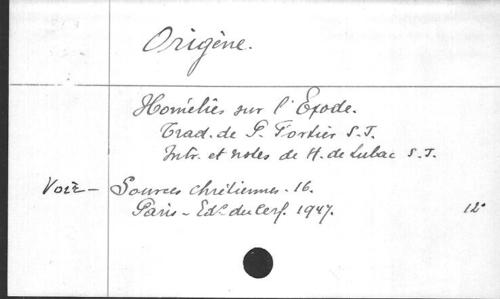 Origène.
Homélies sur l'Exode.
Trad. de P. Fortier S.J.
Intr. et notes de H. de Lubac S.J.
Voir - Sources chrétiennes - 16.
Paris - Ed. du Cerf. 1947. 12°